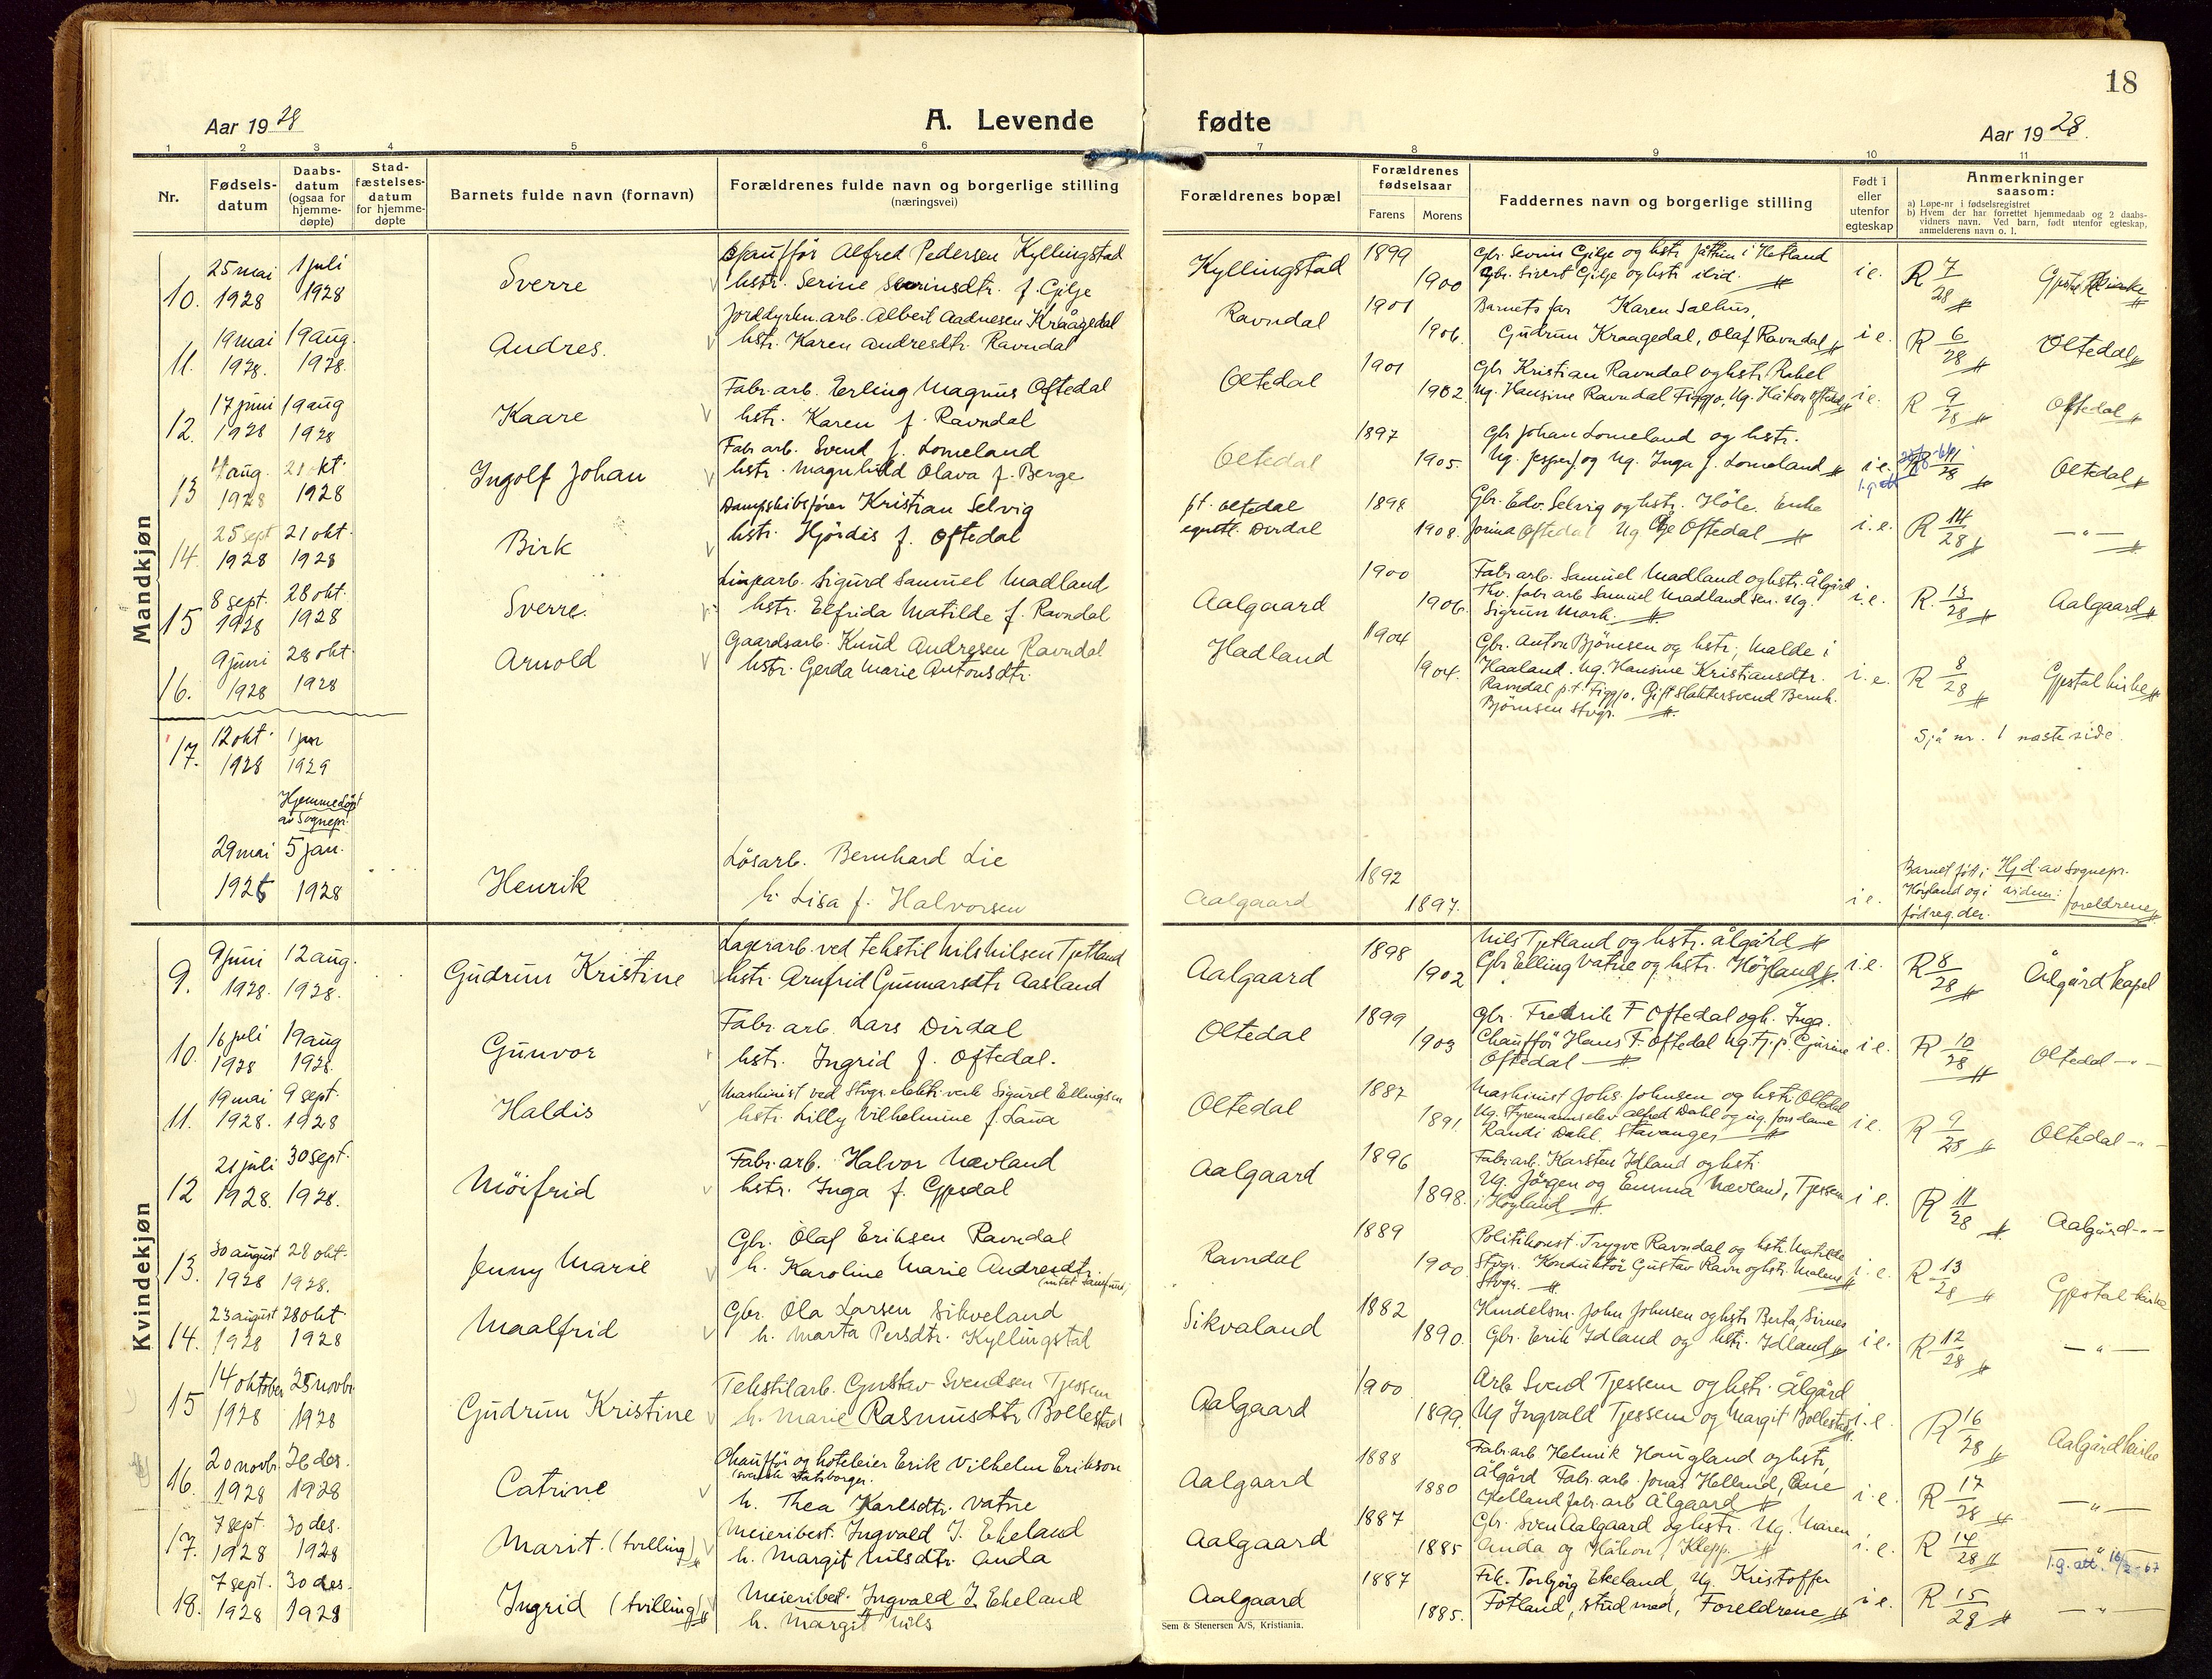 18
Aar 1928
A. Levende fødte
Aar 1928.
1 2 3 4 5 6 7 8 9 10 11
Nr.
Fødsels-
datum
Daabs-
datum
(ogsaa for
hjemme-
døpte)
Stad-
fæstelses-
datum
for hjemme-
døpte
Barnets fulde navn (fornavn)
Forældrenes fulde navn og borgerlige stilling
(næringsvei)
Forældrenes bopæl
Forældrenes
fødselsaar
Farens Morens
Faddernes navn og borgerlige stilling
Født i
eller
utenfor
egteskap
Anmerkninger
saasom:
a) Løpe-nr i fødselsregistret
b) Hvem der har forrettet hjemmedaab og 2 daabs-
vidners navn. Ved barn, født utenfor egteskap,
anmelderens navn o. l.
Mandkjøn
10. 25 mai 1928 1 juli 1928 Sverre
Chauffør Alfred Pedersen Kyllingstad
hstr. Serine Severinsdtr. f. Gilje
Kyllingstad 1899 1900
Gbr. Sevrin Gilje og hstr. i Hetland
Gbr. Sivert Gilje og hstr. ibid.
i e. R 7/28
11. 19 mai 1928. 19 aug. 1928. Andres.
Jorddyrkn. arb. Albert Aadnesen Kraagedal
hstr. Karen Andresdtr. Ravndal
Ravndal 1901 1906.
Barnets far Karen Salhus,
Gudrun Kraagedal, Olaf Ravndal
i e. R 6/28 Oltedal
12. 17 juni 1928 19 aug 1928 Kaare
Fabr. arb. Erling Magnus Oftedal
hstr. Karen f. Ravndal
Oltedal 1901 1902
Gbr Kristian Ravndal og hstr. Rakel
Ug. Hansine Ravndal Figgjo, Ug. Håkon Oftedal
i e. R 9/28 Oftedal
13 4 aug. 1928 21 okt. 1928 Ingolf Johan
Fabr arb. Svend J. Lomeland
hstr. Magnhild Olava f. Berge
Oltedal 1897 1905.
Gbr Johan Lomeland og hstr.
Ug. Jesper J og Ug. Inga J. Lomeland
i e. R 11/28 Oltedal
1. g. att
14. 25 sept 1928 21 okt. 1928 Birk
Dampskibsfører Kristian Selvig
hstr. Hjördis f. Oftedal
pt. Oltedal
egentl. Dirdal 1898 1908.
Gbr. Edv. Selvig og hstr. Höle. Enke
Jorina Oftedal Ug Åge Oftedal
i. e. R 14/28 — " —
15 8 sept. 1928 28 okt. 1928 Sverre.
Linjearb. Sigurd Samuel Madland
hstr. Elfrida Matilde f. Ravndal
Aalgaard 1900 1906.
Fabr arb. Samuel Madland og hstr. Ålgård
Fhv. fabr arb Samuel Madland sen. Ug.
Sigrun Mork.
i. e. R. 13/28 Aalgaard
16. 9 juni 1928 28 okt. 1928 Arnold
Gaardsarb. Knud Andresen Ravndal
hstr. Gerda Marie Antonsdtr.
Hadland 1904 1904.
Gbr. Anton Björnsen og hstr., Malde i
Haaland. Ug. Hansine Kristiansdtr.
Ravndal p.t. Figgjo. Gift slaktersvend Bernh.
Björnsen Stvgr.
i. e. R 8/28 Gjestal kirke
17. 12 okt. 1928 1 jan 1929
Sjå nr. 1 næste side.
Hjemmedöpt
av Sognepr.
29 mai 1926 5 jan. 1928 Henrik
Lösarb. Bernhard Lie
h. Lisa f. Halvorsen
Aalgaard 1892 1897. i e.
Barnet föt i Hjd. av Sognepr.
Höyland og i vidner:
födreg. der. foreldrene
Kvindekjøn
9. 9 juni 1928. 12 aug. 1928. Gudrun Kristine
Lagerarb. ved tekstil Nils Nilsen Tjetland
hstr. Arnfrid Gunnarsdtr Aasland
Aalgaard 1898 1902
Nils Tjetland og hstr. Ålgård
Gbr Elling Vatne og hstr. Höyland
i. e. R 8/28 Ålgård kapel
10. 16 juli 1928 19 aug 1928. Gunvor
Fabr. arb. Lars Dirdal
hstr. Ingrid f. Oftedal.
Oltedal 1899 1903
Gbr. Fredrik F Oftedal og h. Inga.
Chauffö Hans F. Oftedal Ug. Tj. p. Gurine
Oftedal
i e. R 10/28 Oltedal — " —
11. 19 mai 1928. 9 sept. 1928 Haldis
Maskinist ved Stvgr. elektr. verk Sigurd Ellingsen
hstr. Lilly Vilhelmine f. Lana
Oltedal 1887 1891.
Maskinist Johs. Johnsen og hstr Oltedal
Ug. Styremannselev Alfred Dahl og ug. dame
Randi Dahl. Stavanger
i e. R 9/28 Oltedal — " —
12 21 juli 1928. 30 sept. 1928. Möifrid
Fabr. arb. Halvor Nævland
hstr. Inga f. Gjesdal
Aalgaard 1896 1898.
Fabr arb. Karsten Idland og hstr.
Ug. Jörgen og Emma Nævland, Tjessem
i Höyland
i e. R 11/28 Aalgård — " —
13. 30 august 1928 28 okt. 1928. Jenny Marie
Gbr. Olaf Eriksen Ravndal
h. Karoline Marie Andresdtr.
Ravndal 1889 1900
Politikonst. Trygve Ravndal og hstr. Matilde
Stvgr. Konduktör Gustav Ravn og hstr. Malena
Stvgr.
i. e. R 13/28 Gjestal kirke
14. 23 august 1928 28 okt 1928 Maalfrid
Gbr. Ola Larsen Sikveland
h. Marta Persdtr. Kyllingstad
Sikvaland 1882 1890.
Handelsm. John Johnsen og hstr Berta, Sirnes
Gbr. Erik Idland og hstr. Idland
i e. R 12/28 — " —
15 14 oktober 1928 25 novbr 1928 Gudrun Kristine
Tekstilarb. Gustav Svendsen Tjessem
h. Marie Rasmusdtr Bollestad
Aalgaard 1900 1899.
Arb Svend Tjessem og hstr. Ålgård
Ug Ingvald Tjessem og Margit Bollestad
i. e. R 16/28 Aalgård kirke
16. 20 novbr. 1928 26 des. 1928 Catrine
Chauffør og hoteleier Erik Vilhelm Erikson
(svensk statsborger.
h. Thea Karlsdtr. Vatne
Aalgaard 1888 1880
Fabr. arb Helmik Haugland og hstr,
Ålgård Fabr. arb. Jonas Helland, Ane
Helland fabr. arb Ålgaard
i e. R 17/28 — " —
17. 7 sept. 1928 30 des. 1928 Marit. (tvilling)
Meieribest. Ingvald J. Ekeland
h. Margit Nilsdtr. Anda
Aalgaard 1887 1885
Gbr. Sven Aalgaard og hstr. Ug. Maren
Anda og Håkon, Klepp.
i. e. R 14/28
1. g. att.
18. 7 sept. 1928 30 des. 1928 Ingrid (tvilling)
Meieribest. Ingvald J. Ekeland
h. Margit Nils
Aalgaard 1887 1885.
Frk. Torbjörg Ekeland, Ug. Kristoffer
Fotland, stud med, Foreldrene
i e. R 15/28 — " —
Sem & Stenersen A/S, Kristiania.